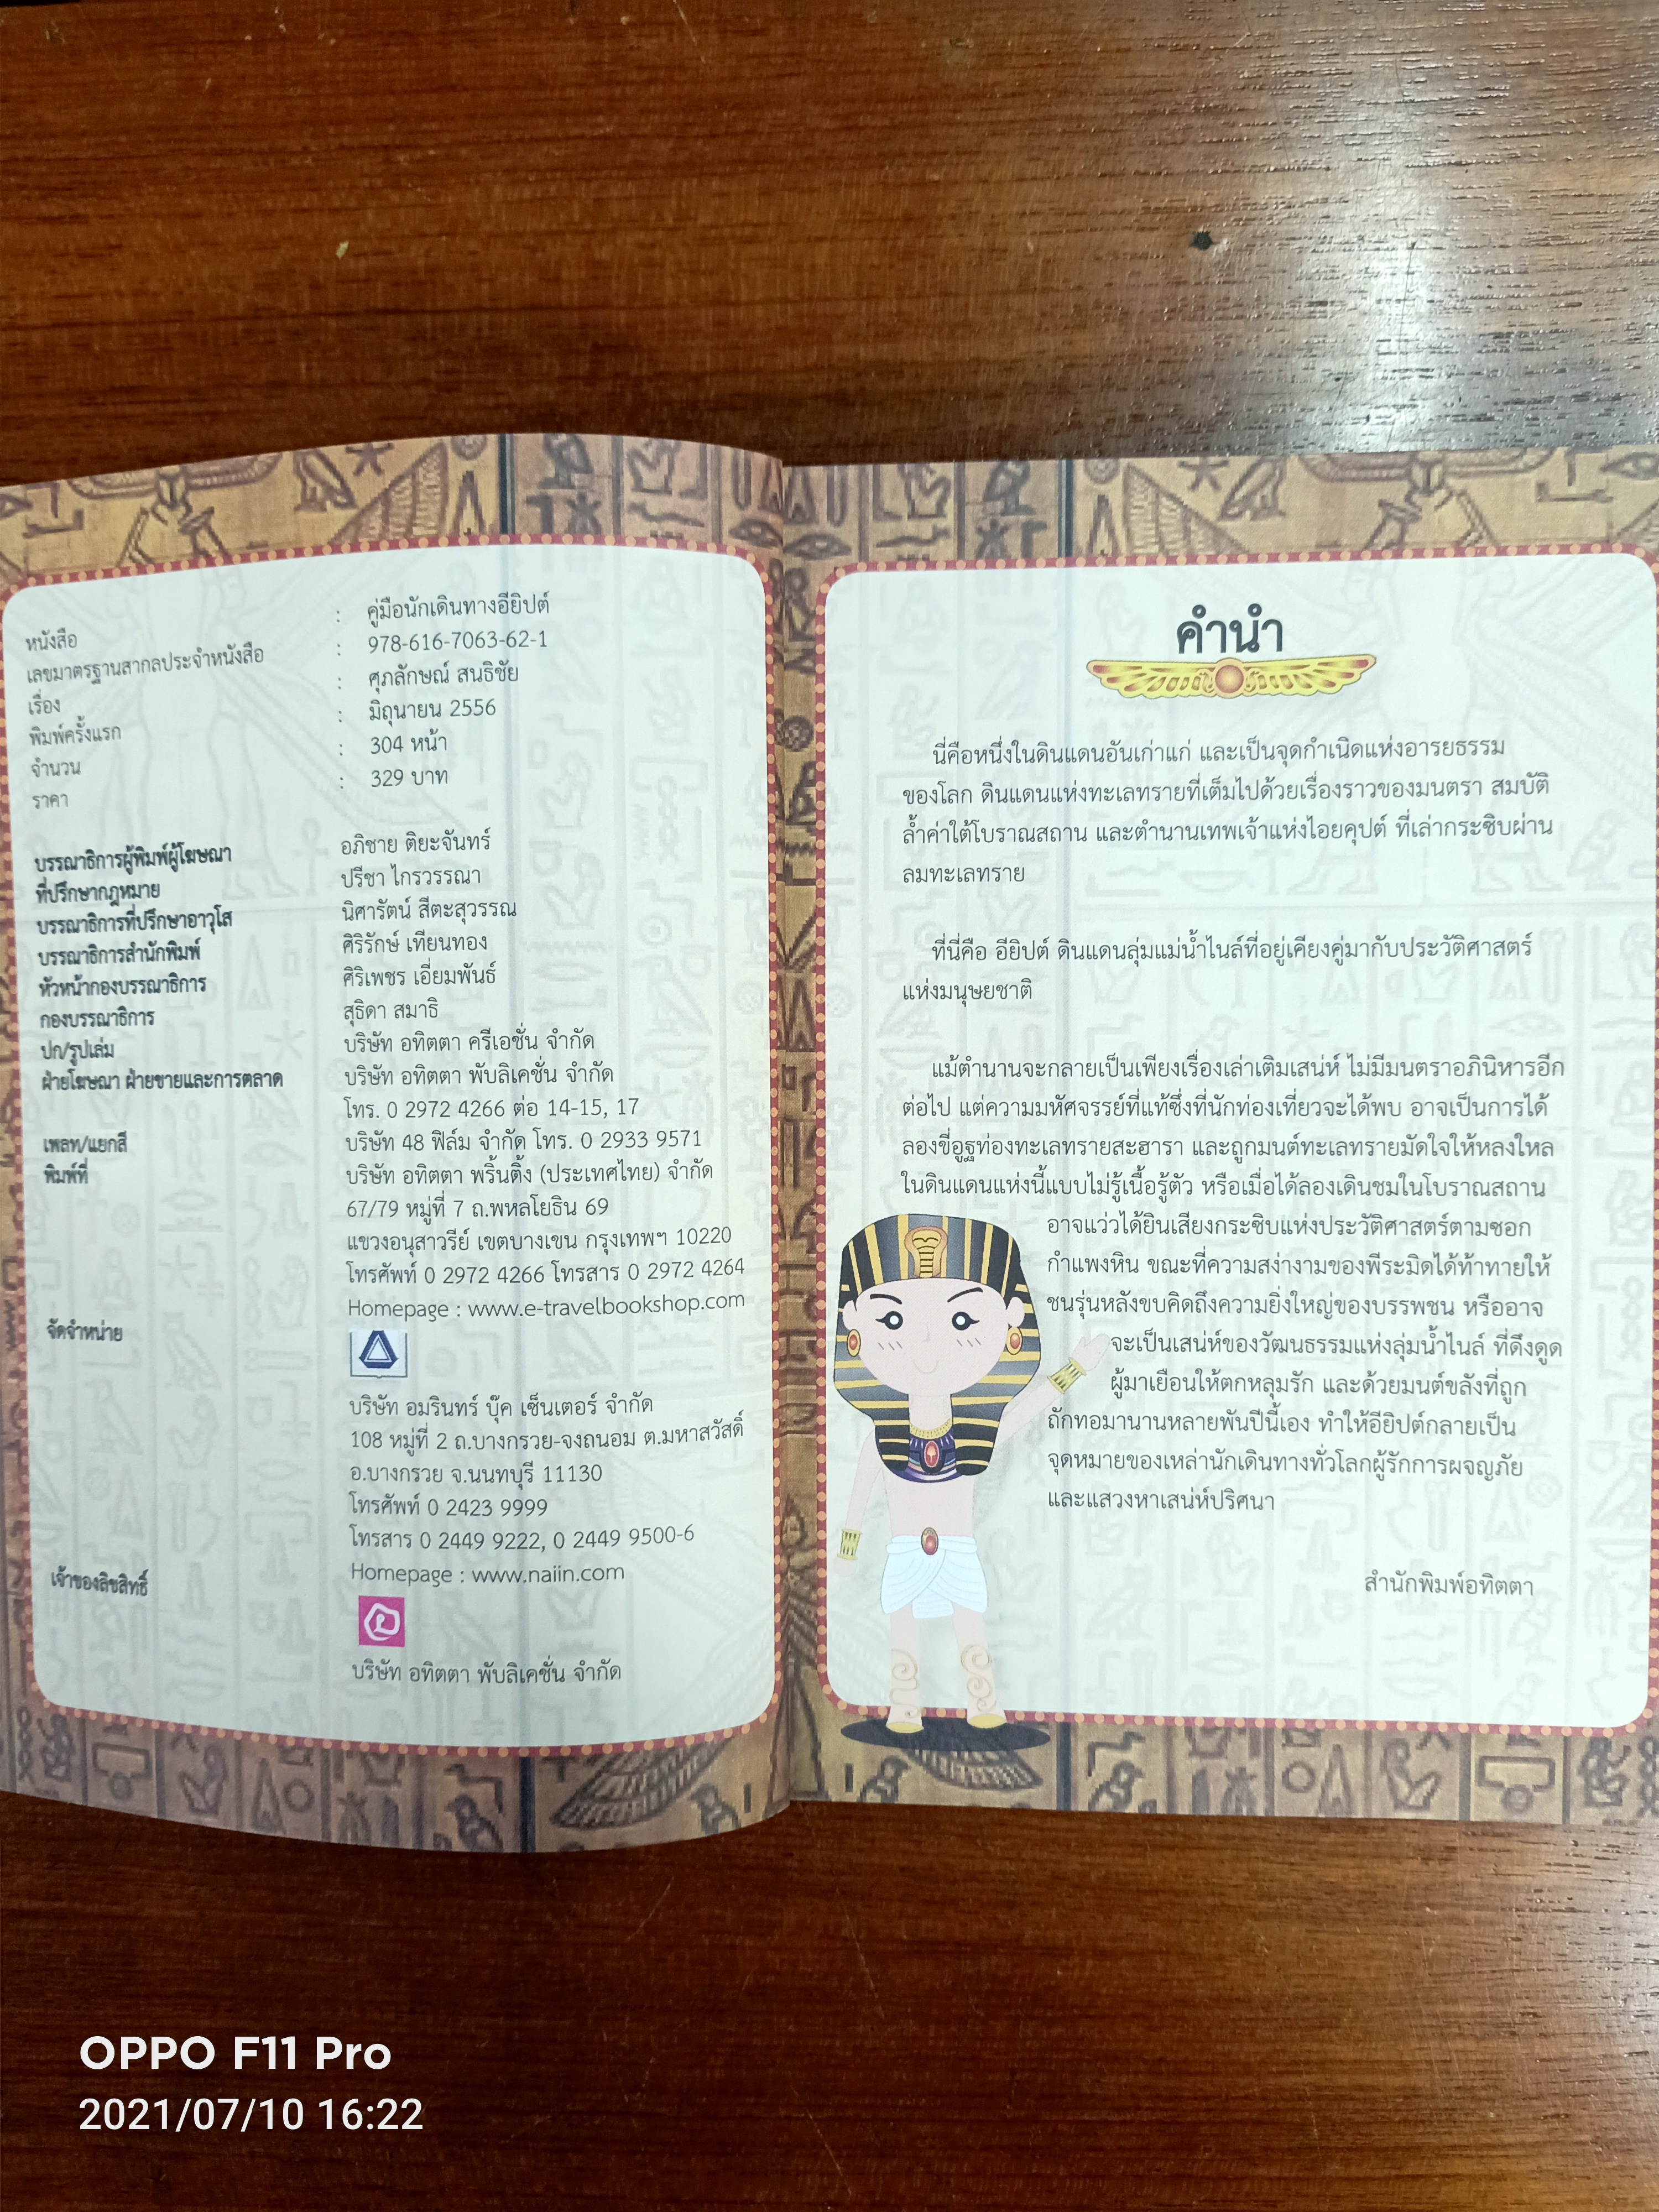 หนังสือ : คู่มือนักเดินทางอียิปต์
เลขมาตรฐานสากลประจำหนังสือ : 978-616-7063-62-1
เรื่อง : ศุภลักษณ์ สนธิชัย
พิมพ์ครั้งแรก : มิถุนายน 2556
จำนวน : 304 หน้า
ราคา : 329 บาท
บรรณาธิการผู้พิมพ์ผู้โฆษณา อภิชาย ติยะจันทร์
ที่ปรึกษากฎหมาย ปรีชา ไกรวรรณา
บรรณาธิการที่ปรึกษาอาวุโส นิศารัตน์ สีตะสุวรรณ
บรรณาธิการสำนักพิมพ์ ศิริรักษ์ เทียนทอง
หัวหน้ากองบรรณาธิการ ศิริเพชร เอี่ยมพันธ์
กองบรรณาธิการ สุธิดา สมาธิ
ปก/รูปเล่ม บริษัท อทิตตา ครีเอชั่น จำกัด
ฝ่ายโฆษณา ฝ่ายขายและการตลาด บริษัท อทิตตา พับลิเคชั่น จำกัด
โทร. 0 2972 4266 ต่อ 14-15, 17
เพลท/แยกสี บริษัท 48 ฟิล์ม จำกัด โทร. 0 2933 9571
พิมพ์ที่ บริษัท อทิตตา พริ้นติ้ง (ประเทศไทย) จำกัด
67/79 หมู่ที่ 7 ถ.พหลโยธิน 69
แขวงอนุสาวรีย์ เขตบางเขน กรุงเทพฯ 10220
โทรศัพท์ 0 2972 4266 โทรสาร 0 2972 4264
Homepage : www.e-travelbookshop.com
จัดจำหน่าย
บริษัท อมรินทร์ บุ๊ค เซ็นเตอร์ จำกัด
108 หมู่ที่ 2 ถ.บางกรวย-จงถนอม ต.มหาสวัสดิ์
อ.บางกรวย จ.นนทบุรี 11130
โทรศัพท์ 0 2423 9999
โทรสาร 0 2449 9222, 0 2449 9500-6
Homepage : www.naiin.com
เจ้าของลิขสิทธิ์
บริษัท อทิตตา พับลิเคชั่น จำกัด
คำนำ
นี่คือหนึ่งในดินแดนอันเก่าแก่ และเป็นจุดกำเนิดแห่งอารยธรรม
ของโลก ดินแดนแห่งทะเลทรายที่เต็มไปด้วยเรื่องราวของมนตรา สมบัติ
ล้ำค่าใต้โบราณสถาน และตำนานเทพเจ้าแห่งไอยคุปต์ ที่เล่ากระซิบผ่าน
ลมทะเลทราย
ที่นี่คือ อียิปต์ ดินแดนลุ่มแม่น้ำไนล์ที่อยู่เคียงคู่มากับประวัติศาสตร์
แห่งมนุษยชาติ
แม้ตำนานจะกลายเป็นเพียงเรื่องเล่าเติมเสน่ห์ ไม่มีมนตราอภินิหารอีก
ต่อไป แต่ความมหัศจรรย์ที่แท้ซึ่งที่นักท่องเที่ยวจะได้พบ อาจเป็นการได้
ลองขี่อูฐท่องทะเลทรายสะฮารา และถูกมนต์ทะเลทรายมัดใจให้หลงใหล
ในดินแดนแห่งนี้แบบไม่รู้เนื้อรู้ตัว หรือเมื่อได้ลองเดินชมในโบราณสถาน
อาจแว่วได้ยินเสียงกระซิบแห่งประวัติศาสตร์ตามซอก
กำแพงหิน ขณะที่ความสง่างามของพีระมิดได้ท้าทายให้
ชนรุ่นหลังขบคิดถึงความยิ่งใหญ่ของบรรพชน หรืออาจ
จะเป็นเสน่ห์ของวัฒนธรรมแห่งลุ่มน้ำไนล์ ที่ดึงดูด
ผู้มาเยือนให้ตกหลุมรัก และด้วยมนต์ขลังที่ถูก
ถักทอมานานหลายพันปีนี้เอง ทำให้อียิปต์กลายเป็น
จุดหมายของเหล่านักเดินทางทั่วโลกผู้รักการผจญภัย
และแสวงหาเสน่ห์ปริศนา
สำนักพิมพ์อทิตตา
OPPO F11 Pro
2021/07/10 16:22